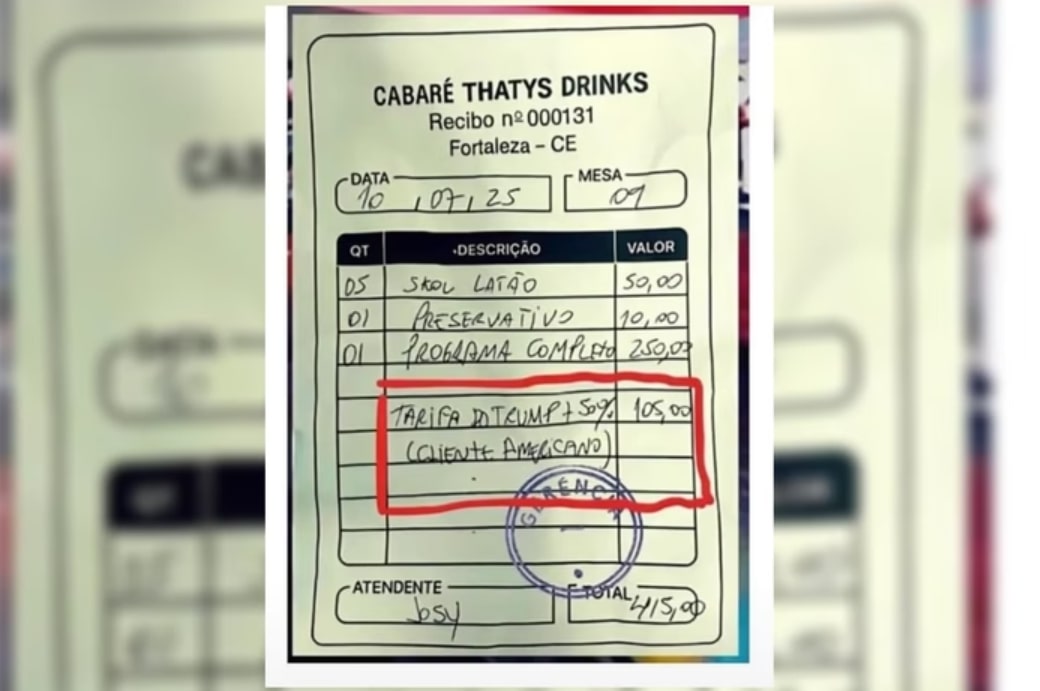 CABARÉ THATYS DRINKS
Recibo nº 000131
Fortaleza – CE
DATA 10 / 07 / 25 MESA 09
QT DESCRIÇÃO VALOR
05 SKOL LATÃO 50,00
01 PRESERVATIVO 10,00
01 PROGRAMA COMPLETO 250,00
TARIFA DO TRUMP + 50% 105,00
(CLIENTE AMERICANO)
GERÊNCIA
ATENDENTE Josy TOTAL 415,00